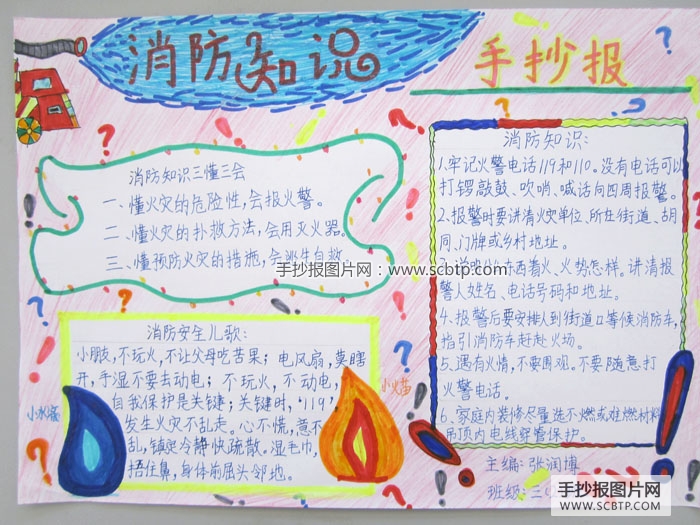 消防知识
手抄报
消防知识三懂三会
一、懂火灾的危险性，会报火警。
二、懂火灾的扑救方法，会用灭火器。
三、懂预防火灾的措施，会逃生自救。
消防安全儿歌：
小朋友，不玩火，不让父母吃苦果；电风扇，莫瞎
开，手湿不要去动电；不玩火，不动电，
自我保护是关键；关键时，'119'，
发生火灾不乱走。心不慌，意不
乱，镇定冷静快疏散。湿毛巾，
捂住鼻，身体前屈头邻地。
小水滴
小火苗
消防知识：
1.牢记火警电话119和110。没有电话可以
打锣敲鼓、吹哨、喊话向四周报警。
2、报警时要讲清火灾单位、所在街道、胡
同、门牌或乡村地址。
东西着火、火势怎样。讲清报
警人姓名、电话号码和地址。
4、报警后要安排人到街道口等候消防车，
指引消防车赶赴火场。
5、遇有火情，不要围观。不要随意打
火警电话。
6、家庭内装修尽量选不燃或难燃材料
吊顶内电线穿管保护。
主编：张润博
班级：三
手抄报图片网：www.scbtp.com
手抄报图片网
WWW.SCBTP.COM